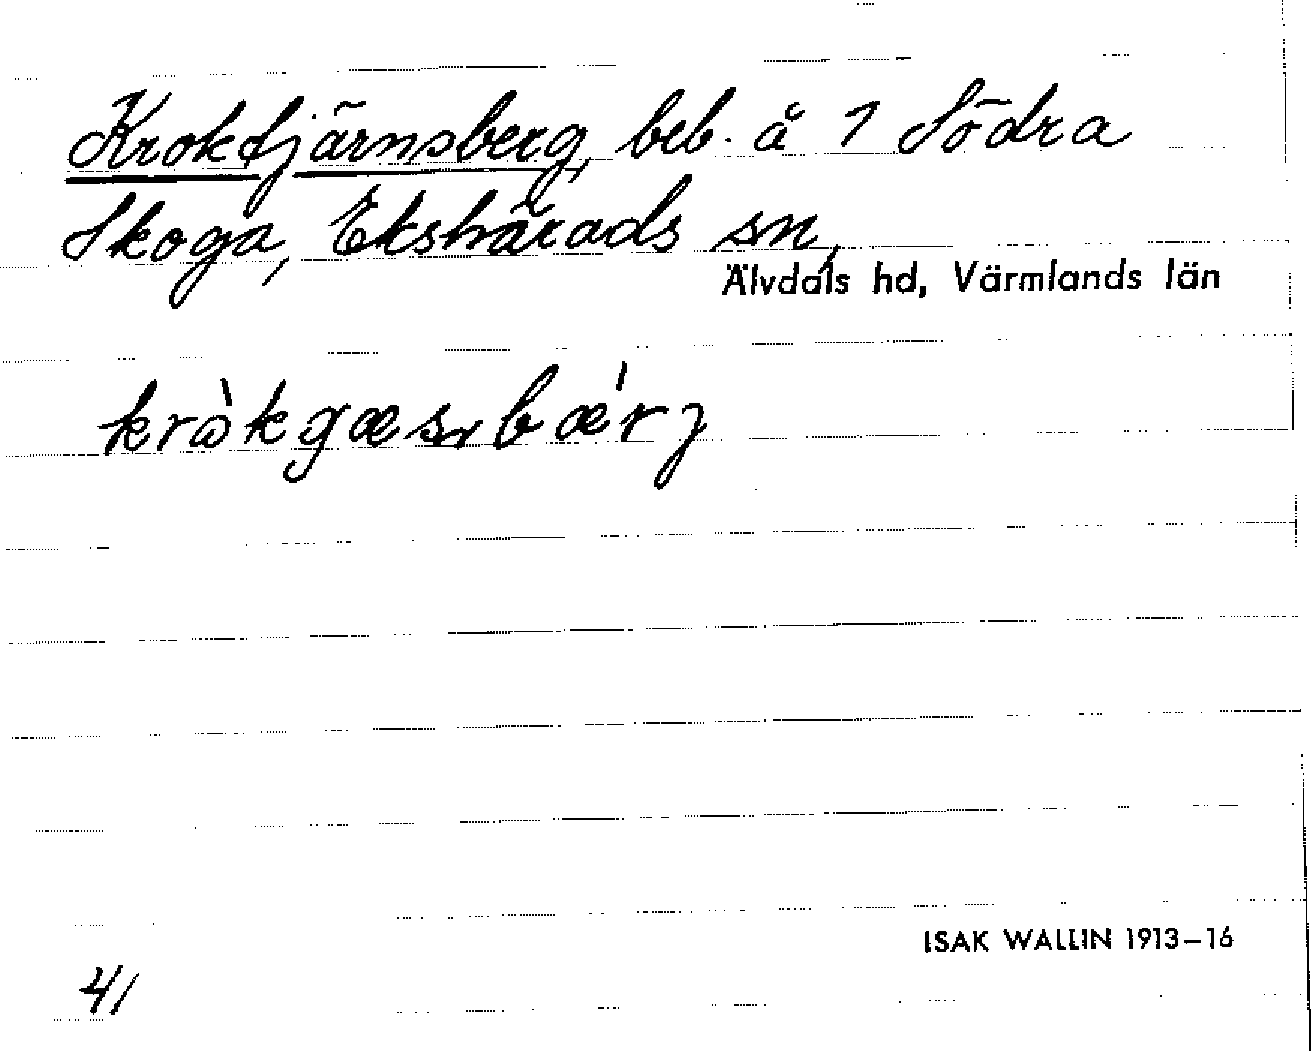 Kroktjärnsberg, beb. å 1 Södra
Skoga, Ekshärads sn,
Älvdals hd, Värmlands län
krò̀kgæsbǽrj
ISAK WALLIN 1913–16
41